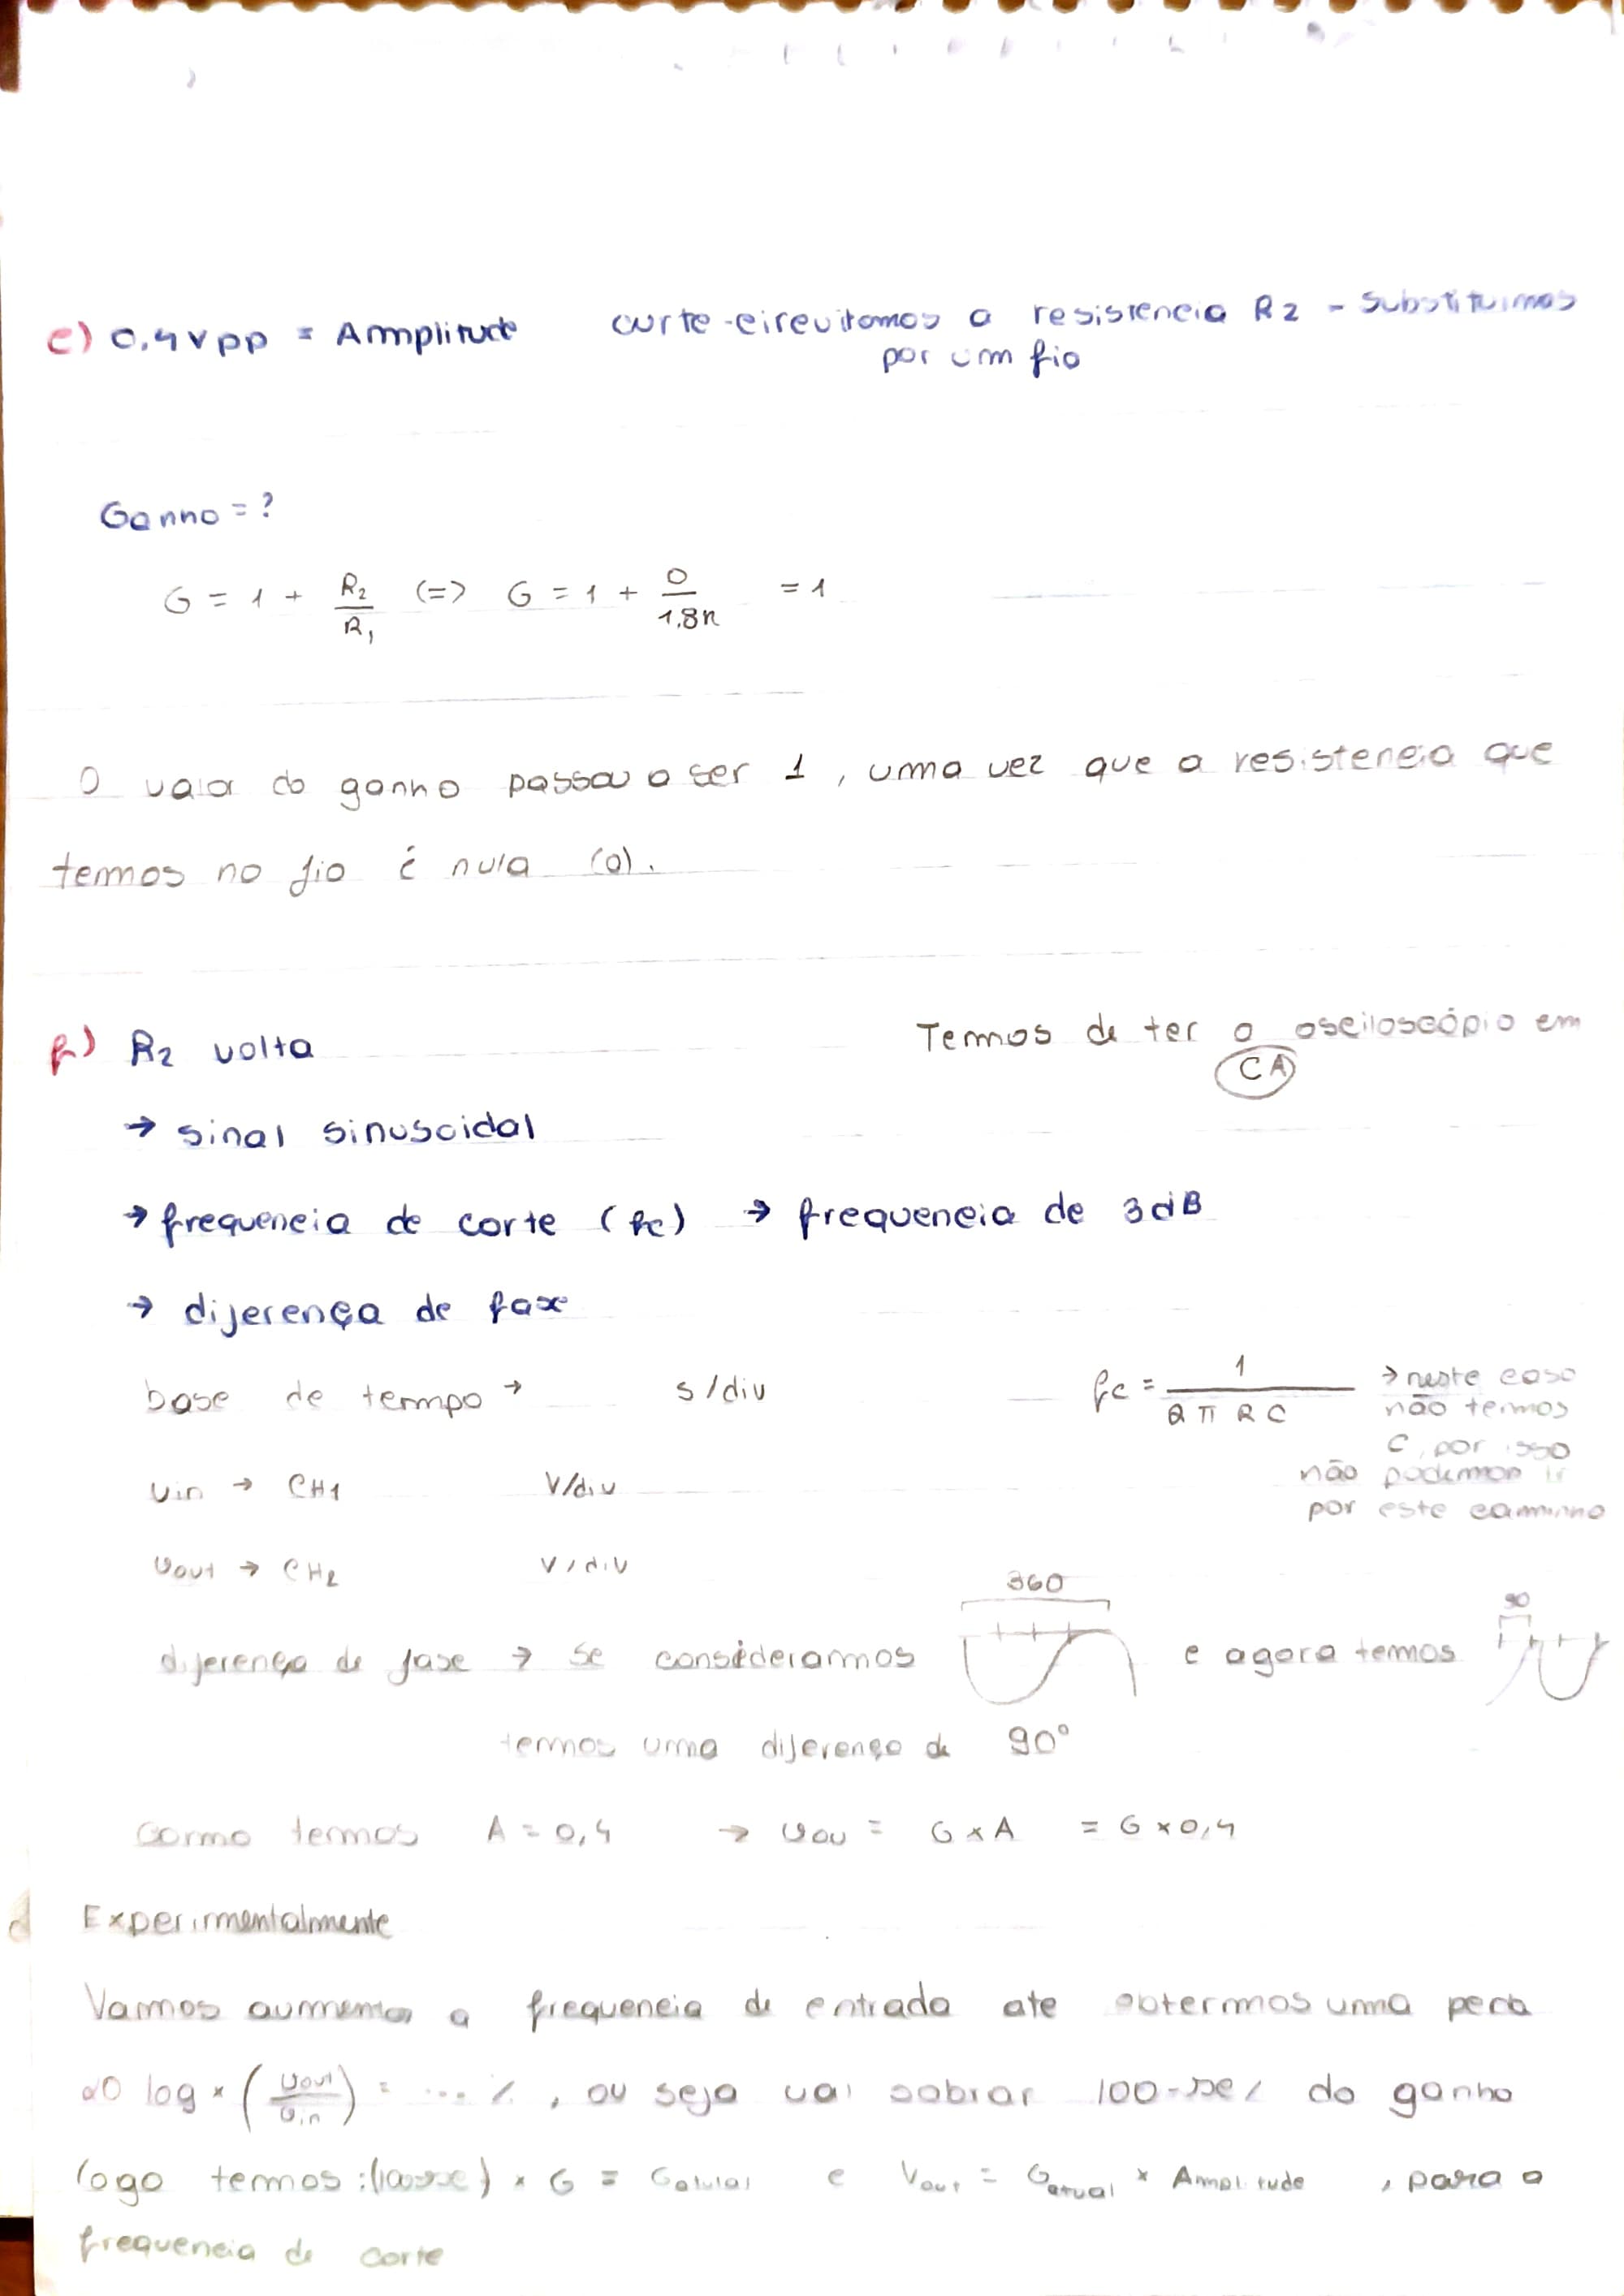 e) 0.4 Vpp = Ammplitude curte-circuitamos a resistencia R2 - Substituimos
por um fio
Ganho = ?
G = 1 + R2/R1 (=) G = 1 + 0/1.8k = 1
O valor do ganho passou a ser 1, uma vez que a resistencia que
temos no fio é nula (0).
f) R2 volta Temos de ter o osciloscópio em
CA
→ sinal sinusoidal
→ frequencia de corte (fc) → frequencia de 3dB
→ diferença de fase
base de tempo → s/div
fc = 1/(2 π R C) → neste caso
não temos
C, por isso
não podemos ir
por este caminho
Vin → CH1 V/div
Vout → CH2 V/div
360
90
diferença de fase → se considerarmos e agora temos
temos uma diferença de 90°
Como temos A = 0,4 → Vou = G x A = G x 0,4
Experimentalmente
Vamos aumentar a frequencia de entrada ate obtermos uma perda
20 log x (Vout/Vin) = ... %, ou seja vai sobrar 100-x% do ganho
logo temos: x G = Gatual e Vout = Gatual x Amplitude, para a
frequencia de corte